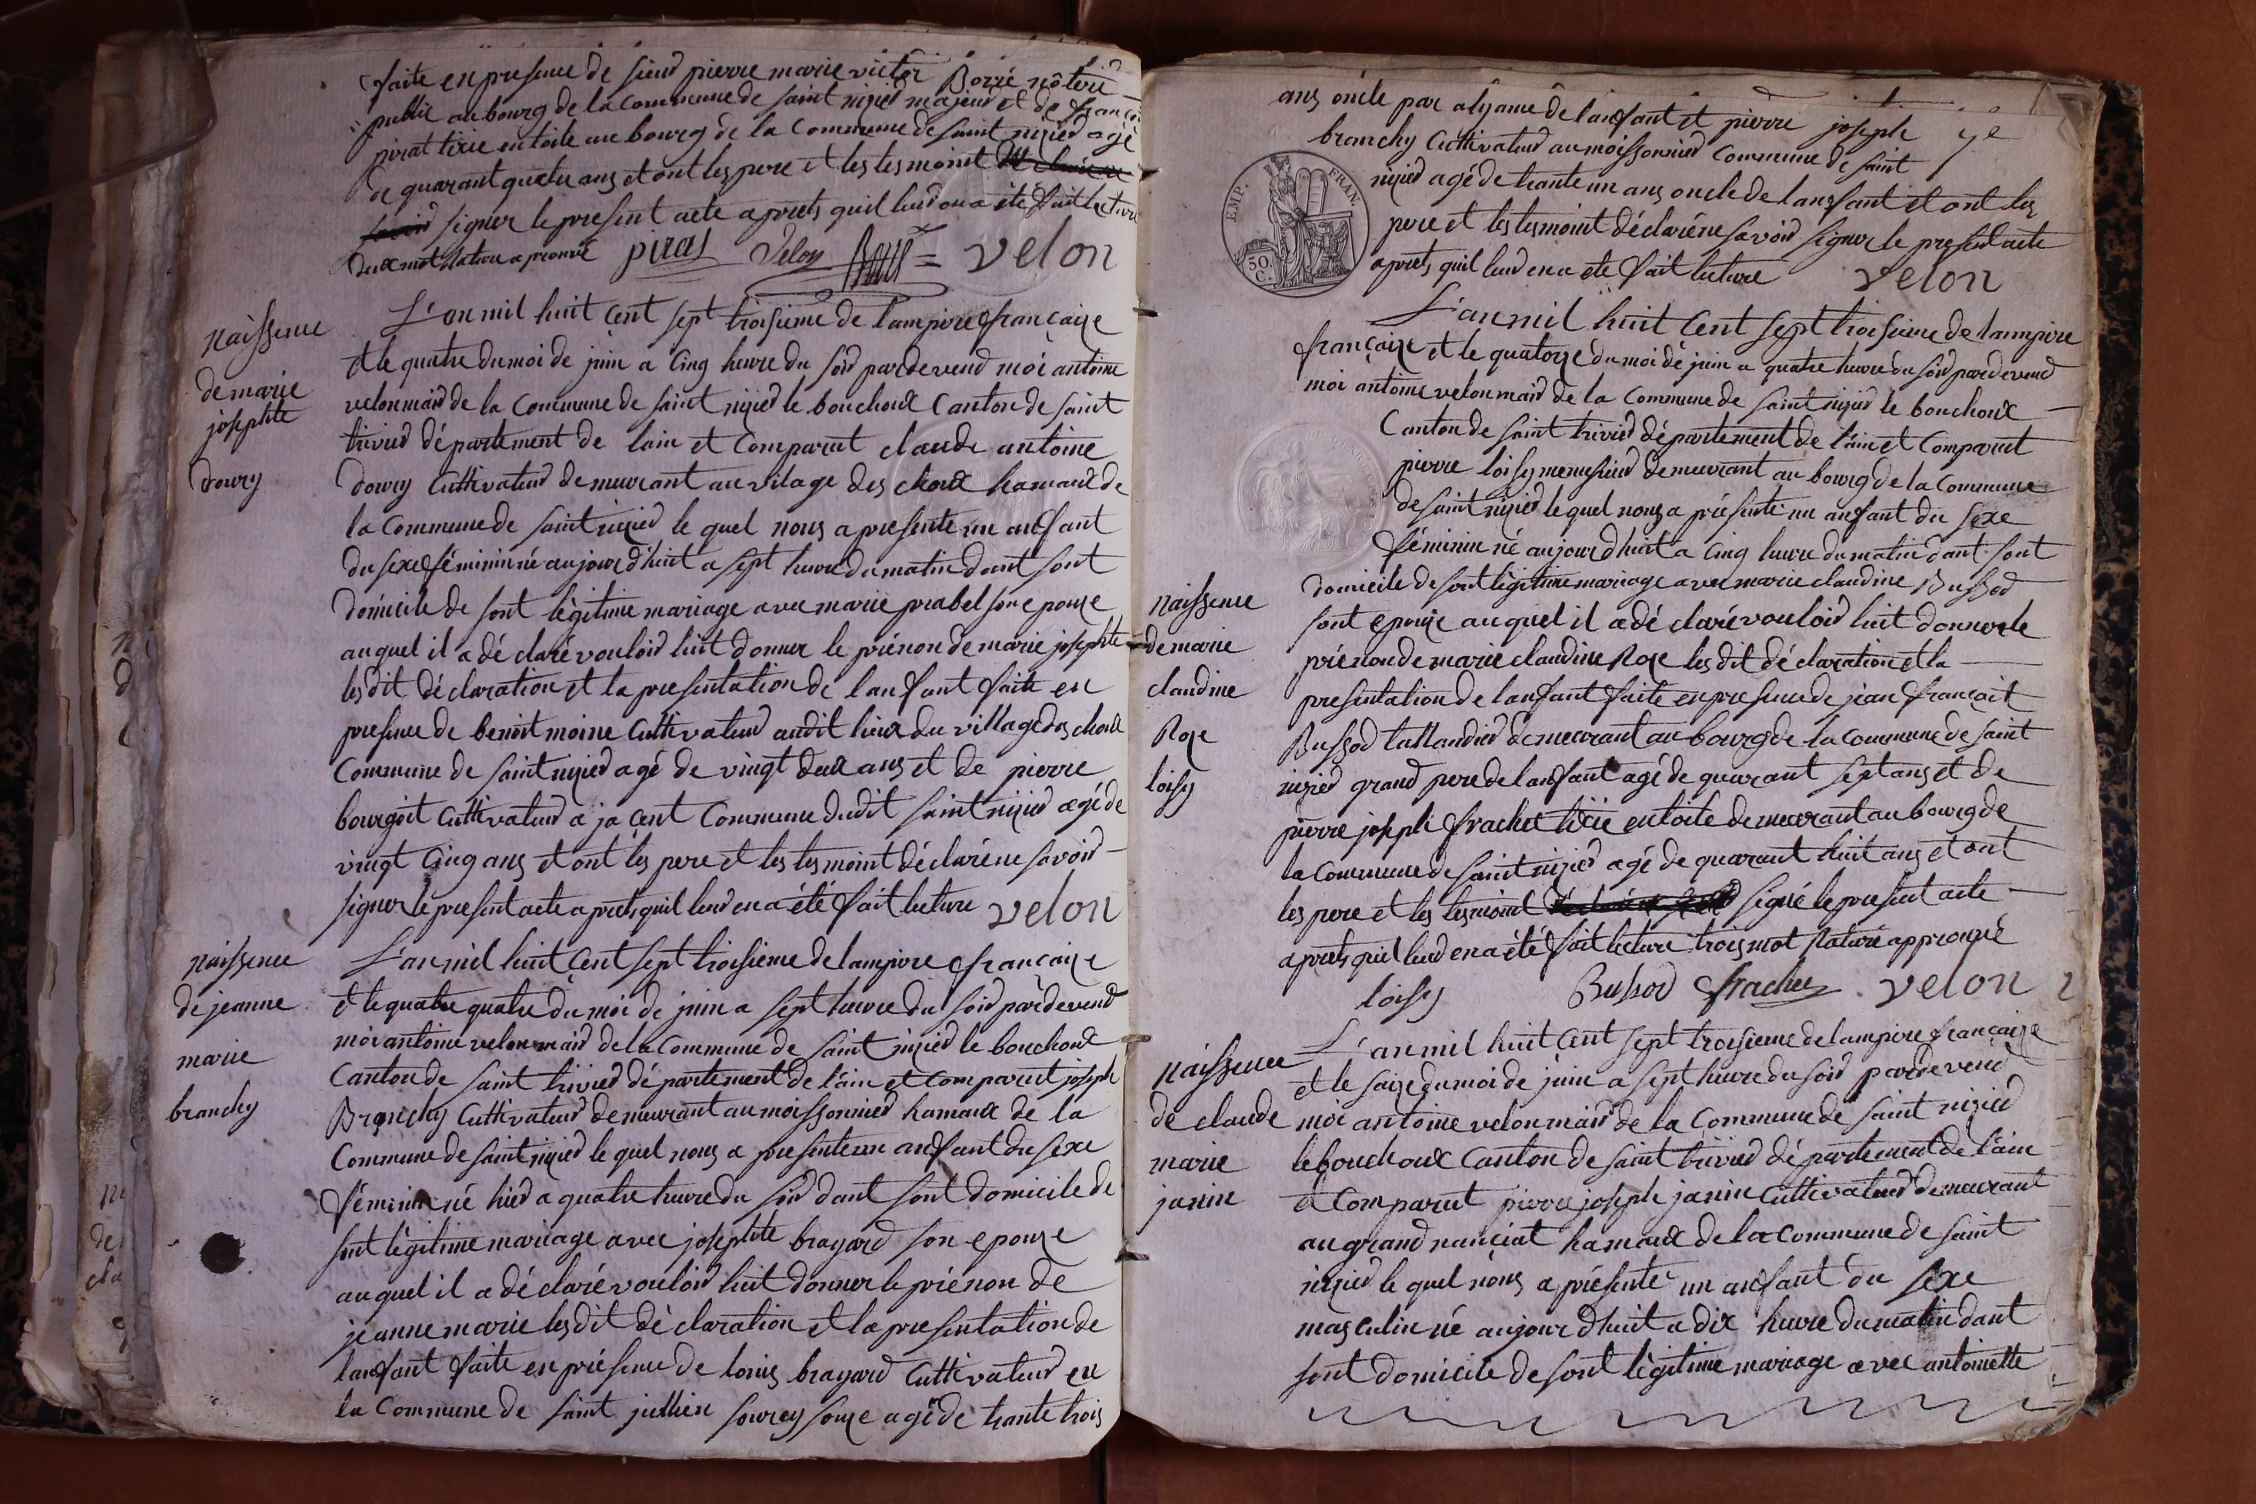 faite en presence de sieur pierre marie victor Borré nôterre
public au bourg de la Commune de saint nizied majeur et de françoi
pirat tixie en toile au bourg de la Commune de saint nizied agé
de quarant quatre ans et ont les pere et les tesmoint
signer le present acte a prets quil leur on a été fait lecture
deux mot Nature a prouvé piras Velon Borré velon
Naissence
de marie
josephte
doury
L'an mil huit Cent sept troisieme de l'ampire française
et le quatre du moi de juin a Cinq heure du soir par devend moi antoine
velon maire de la Commune de saint nizied le bouchoux Canton de saint
trivied département de l'ain et Comparut claude antoine
doury Cultivateur demeurant au vilage des choux hamaux de
la Commune de saint nizied le quel nous a presente un anfant
du sexe féminin né aujourd'huit a sept heure du matin dant sont
domicile de sont légitime mariage avec marie prabel son epouze
auquel il a dé claré vouloir luit donner le prénon de marie josephte
les dit dé claration et la presentation de l'anfant faite en
presence de benoit moine Cultivateur audit lieux du village des choux
Commune de saint nizied agé de vingt deux ans et de pierre
bourgoit Cultivateur a ja Cent Commune dudit saint nizied agé de
vingt Cinq ans et ont les pere et les tesmoint déclaré ne savoir
signer le present acte a prets quil leur en a été fait lecture velon
Naissence
de jeanne
marie
branchy
L'an mil huit Cent sept troisieme de l'ampire française
et le quatre quatre du moi de juin a sept heure du soir par devend
moi antoine velon maire de la Commune de saint nizied le bouchoux
Canton de saint trivied dé partement de l'ain et Comparut joseph
Branchy Cultivateur demeurant au moissonnied hamaux de la
Commune de saint nizied le quel nous a presente un anfant du sexe
féminin né hier a quatre heure du soir dant sont domicile de
sont légitime mariage avec josephte brayard son epouze
auquel il a dé claré vouloir luit donner le prénon de
jeanne marie les dit dé claration et la presentation de
l'anfant faite en présence de louis brayard Cultivateur en
la Commune de saint jullien sur reyssouze agé de trante trois
ans oncle par alyance de l'anfant et pierre joseph
branchy Cultivateur au moissonnied Commune de saint
nizied agé de trante un ans oncle de l'anfant et ont les
pere et les tesmoint déclaré ne savoir signer le present acte
a prets quil leur en a eté fait lecture velon
EMP. FRAN.
50 C.
L'an mil huit Cent sept troisieme de l'ampire
française et le quatorze du moi de juin a quatre heure du soir par devend
moi antoine velon maire de la Commune de saint nizied le bouchoux
Canton de saint trivied département de l'ain et Comparut
pierre loisy menusieur demeurant au bourg de la Commune
de saint nizied le quel nous a présente un anfant du sexe
féminin né aujourd'huit a Cinq heure du matin dant sont
domicile de sont légitime mariage avec marie claudine Bussod
sont epouze auquel il a dé claré vouloir luit donner le
prénon de marie claudine Roze les dit déclaration et la
presentation de l'anfant faite en presence de jean françoit
Bussod tallandier demeurant au bourg de la Commune de saint
nizied grand pere de l'anfant agé de quarant sept ans et de
pierre joseph frachet tixie en toile demeurant au bourg de
la Commune de saint nizied agé de quarant huit ans et ont
les pere et les tesmoint signé le present acte
a prets quil leur en a été fait lecture trois mot Nature approuvé
loisy Bussod frachet velon
Naissence
de marie
claudine
Roze
loisy
Naissence
de claude
marie
janin
L'an mil huit Cent sept troisieme de l'ampire française
et le saize du moi de juin a sept heure du soir par devend
moi antoine velon maire de la Commune de saint nizied
le bouchoux Canton de saint trivied dé partement de l'ain
et Comparut pierre joseph janin Cultivateur demeurant
au grand nanciat hamaux de la Commune de saint
nizied le quel nous a présente un anfant du sexe
masculin né aujourd'huit a dix heure du matin dant
sont domicile de sont légitime mariage avec antoinette